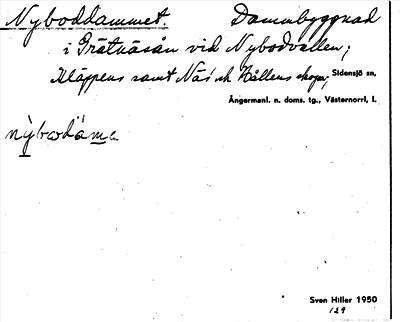 Nyboddammet. Dammbyggnad
i Grätnäsån vid Nybodvallen;
Kläppens samt Näs' och Hållens skogar, Sidensjö sn,
Ångermanl. n. doms. tg., Västernorrl. l.
Sven Hiller 1950
129